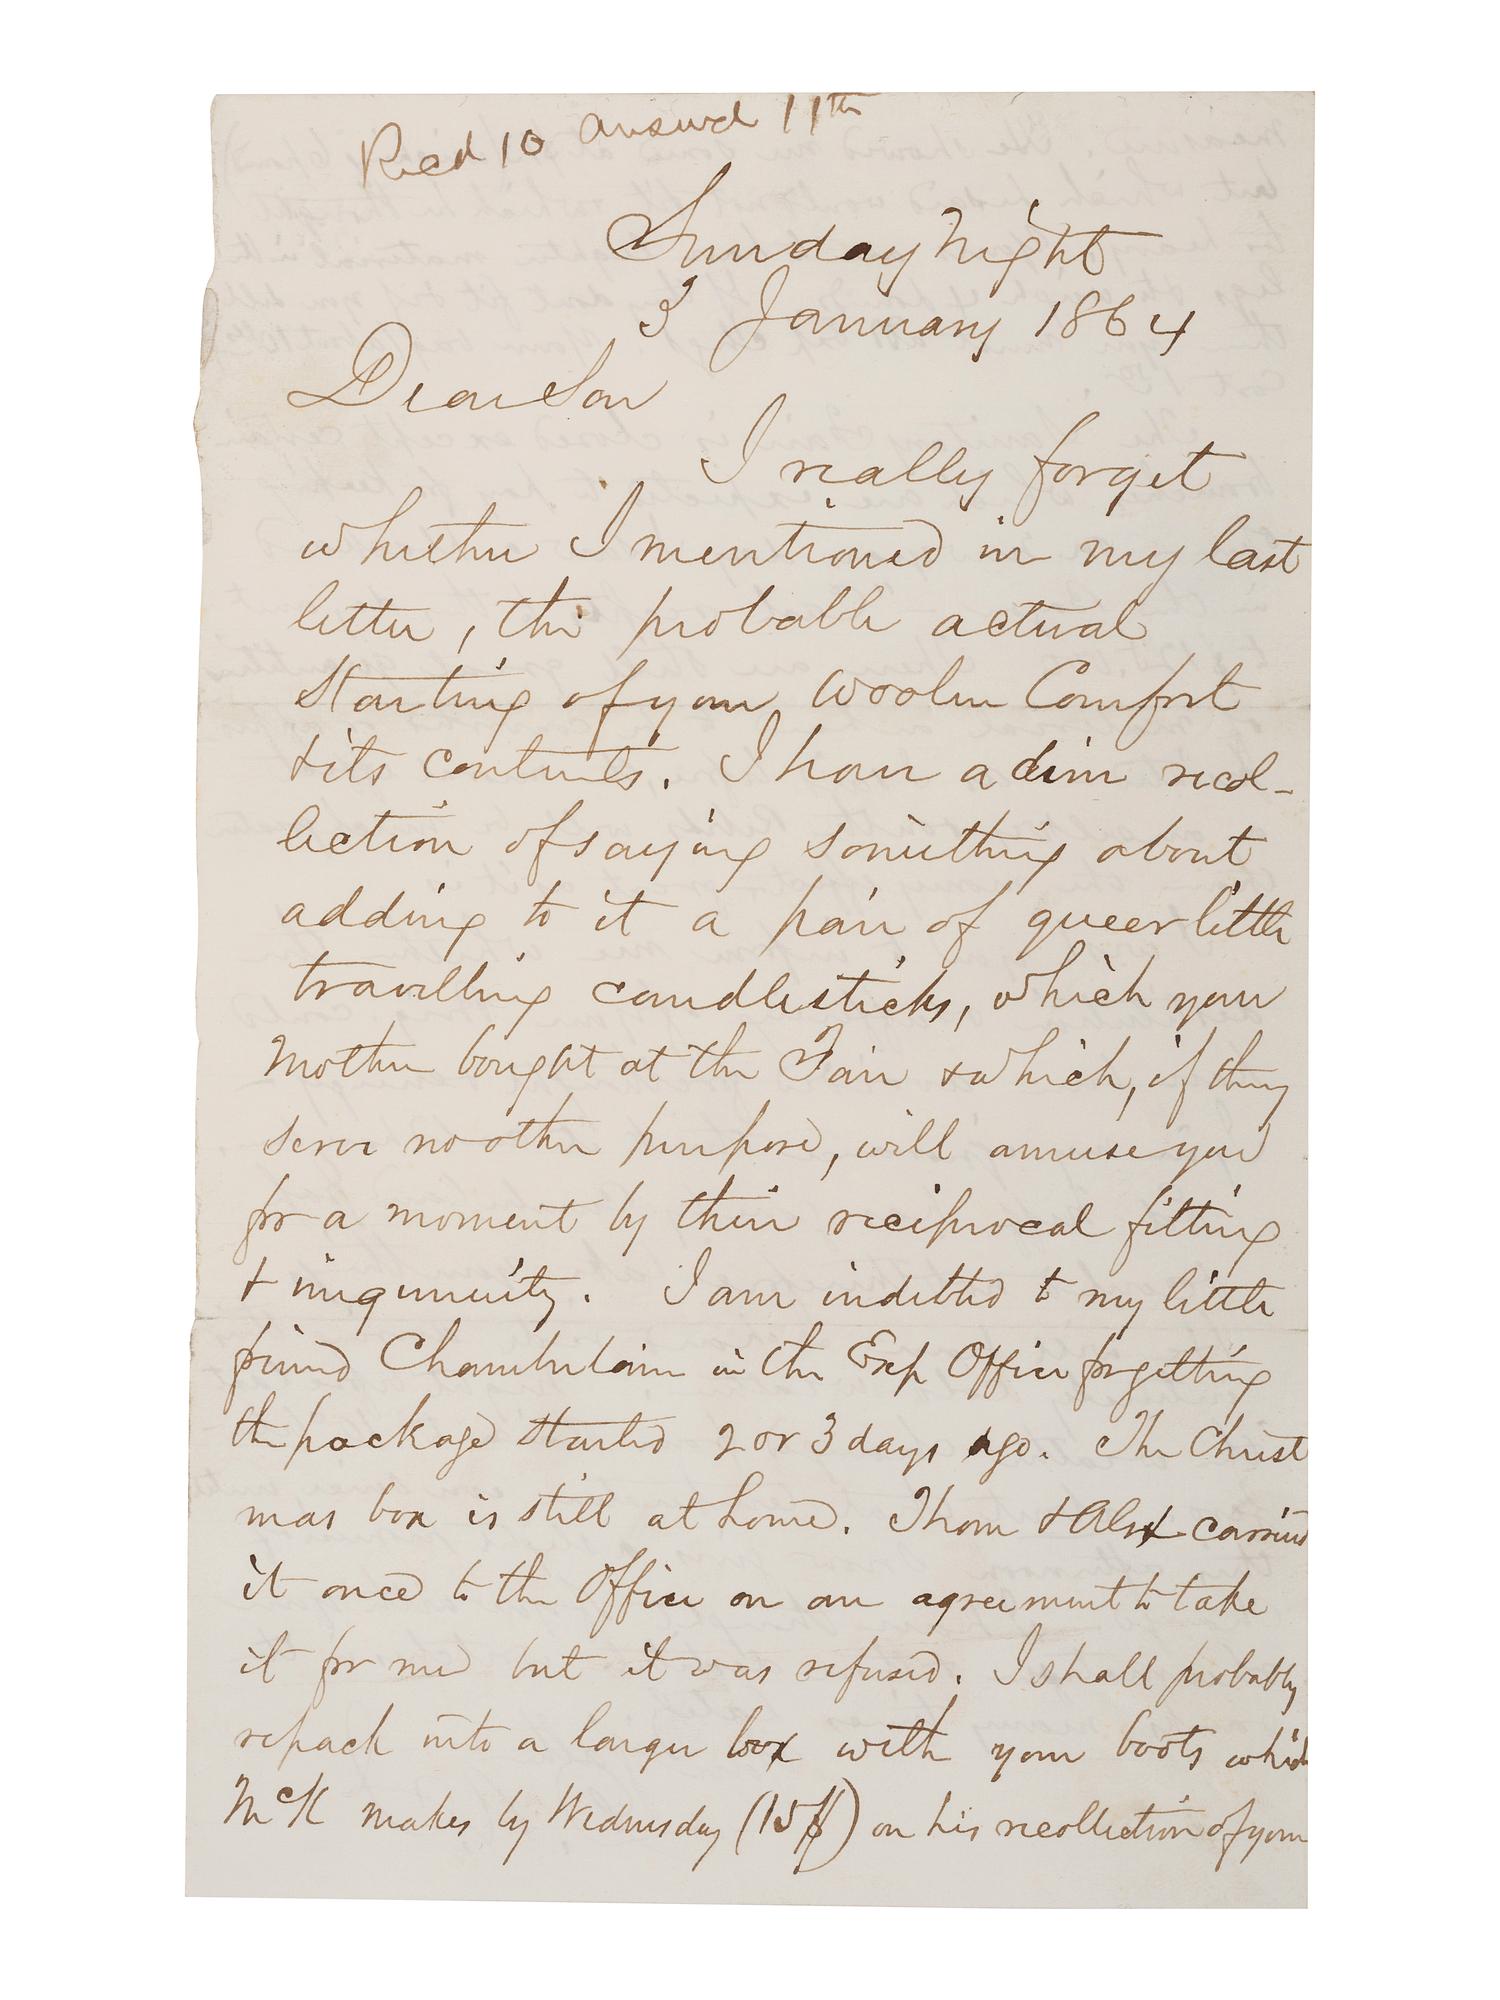 Recd 10 answd 11th
Sunday Night
3 January 1864
Dear Son
I really forget
whether I mentioned in my last
letter, the probable actual
starting of your woolen Comfort
& its contents. I have a dim recol-
lection of saying something about
adding to it a pair of queer little
travelling candlesticks, which your
Mother bought at the Fair & which, if they
serve no other purpose, will amuse you
for a moment by their reciprocal fitting
& ingenuity. I am indebted to my little
friend Chamberlain in the Exp Office for getting
the package started 2 or 3 days ago. The Christ
mas box is still at home. Thom & Alex carried
it once to the Office on an agreement to take
it for me but it was refused. I shall probably
repack into a larger box with your boots which
McK makes by Wednesday (15$) on his recollection of your